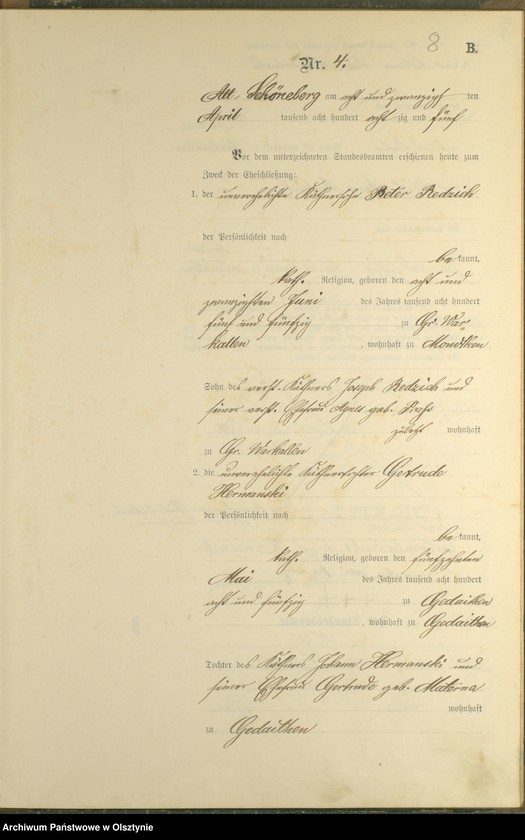 8 B.
Nr. 4.
Alt-Schöneberg am acht und zwanzigsten
April tausend acht hundert achtzig und fünf
Vor dem unterzeichneten Standesbeamten erschienen heute zum
Zweck der Eheschließung:
1. der unverehelichte Käthnersohn Peter Redzich
der Persönlichkeit nach
bekannt,
kath. Religion, geboren den acht und
zwanzigsten Juni des Jahres tausend acht hundert
fünf und fünfzig zu Gr. War-
kallen, wohnhaft zu Mondtken
Sohn des verst. Käthners Joseph Redzich und
seiner verst. Ehefrau Agnes geb.
zuletzt wohnhaft
zu Gr. Warkallen
2. die unverehelichte Käthnertochter Getrude
Hermanski
der Persönlichkeit nach
bekannt,
kath. Religion, geboren den fünfzehnten
Mai des Jahres tausend acht hundert
acht und fünfzig zu Gedaithen
, wohnhaft zu Gedaithen
Tochter des Käthners Johann Hermanski und
seiner Ehefrau Gertrude geb. Materna
wohnhaft
zu Gedaithen
Archiwum Państwowe w Olsztynie